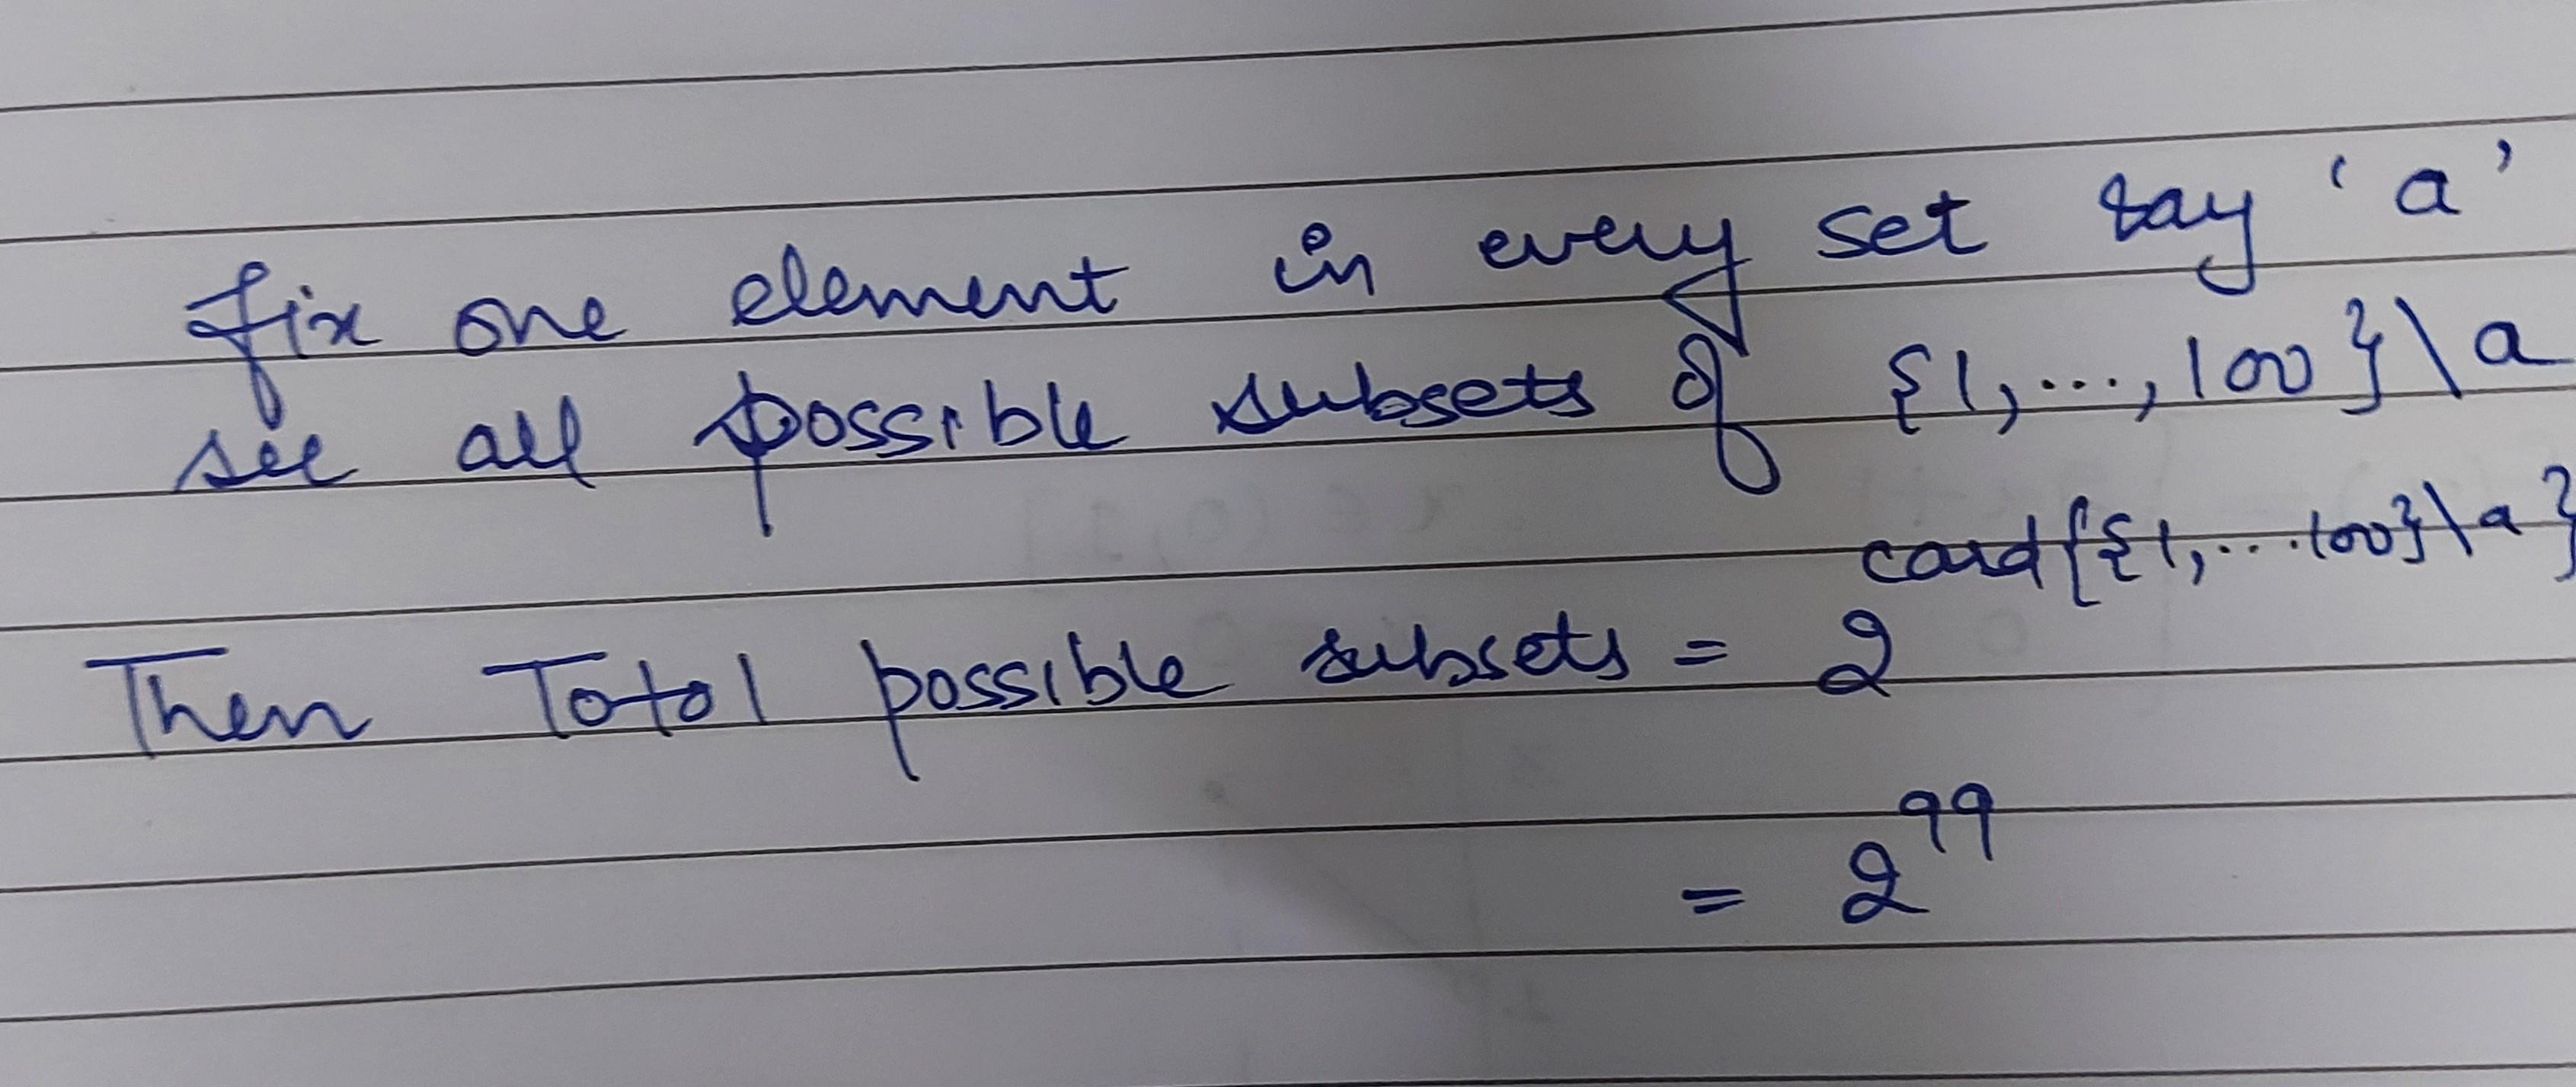 fix one element in every set say 'a'
see all possible subsets of {1,...,100}\a
Then Total possible subsets = 2^card{{1,...100}\a}
= 2^99